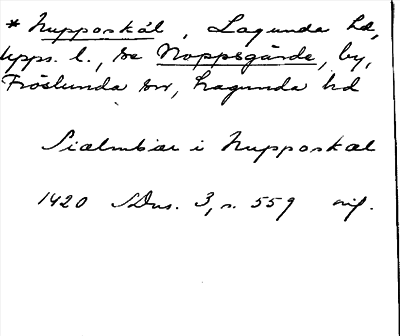 * Nupposkål, Lagunda hd,
Upps. l., se Noppsgärde, by,
Fröslunda sn, Lagunda hd
Sialmbiær i Nupposkal
1420 SDns. 3, s. 559 orig.